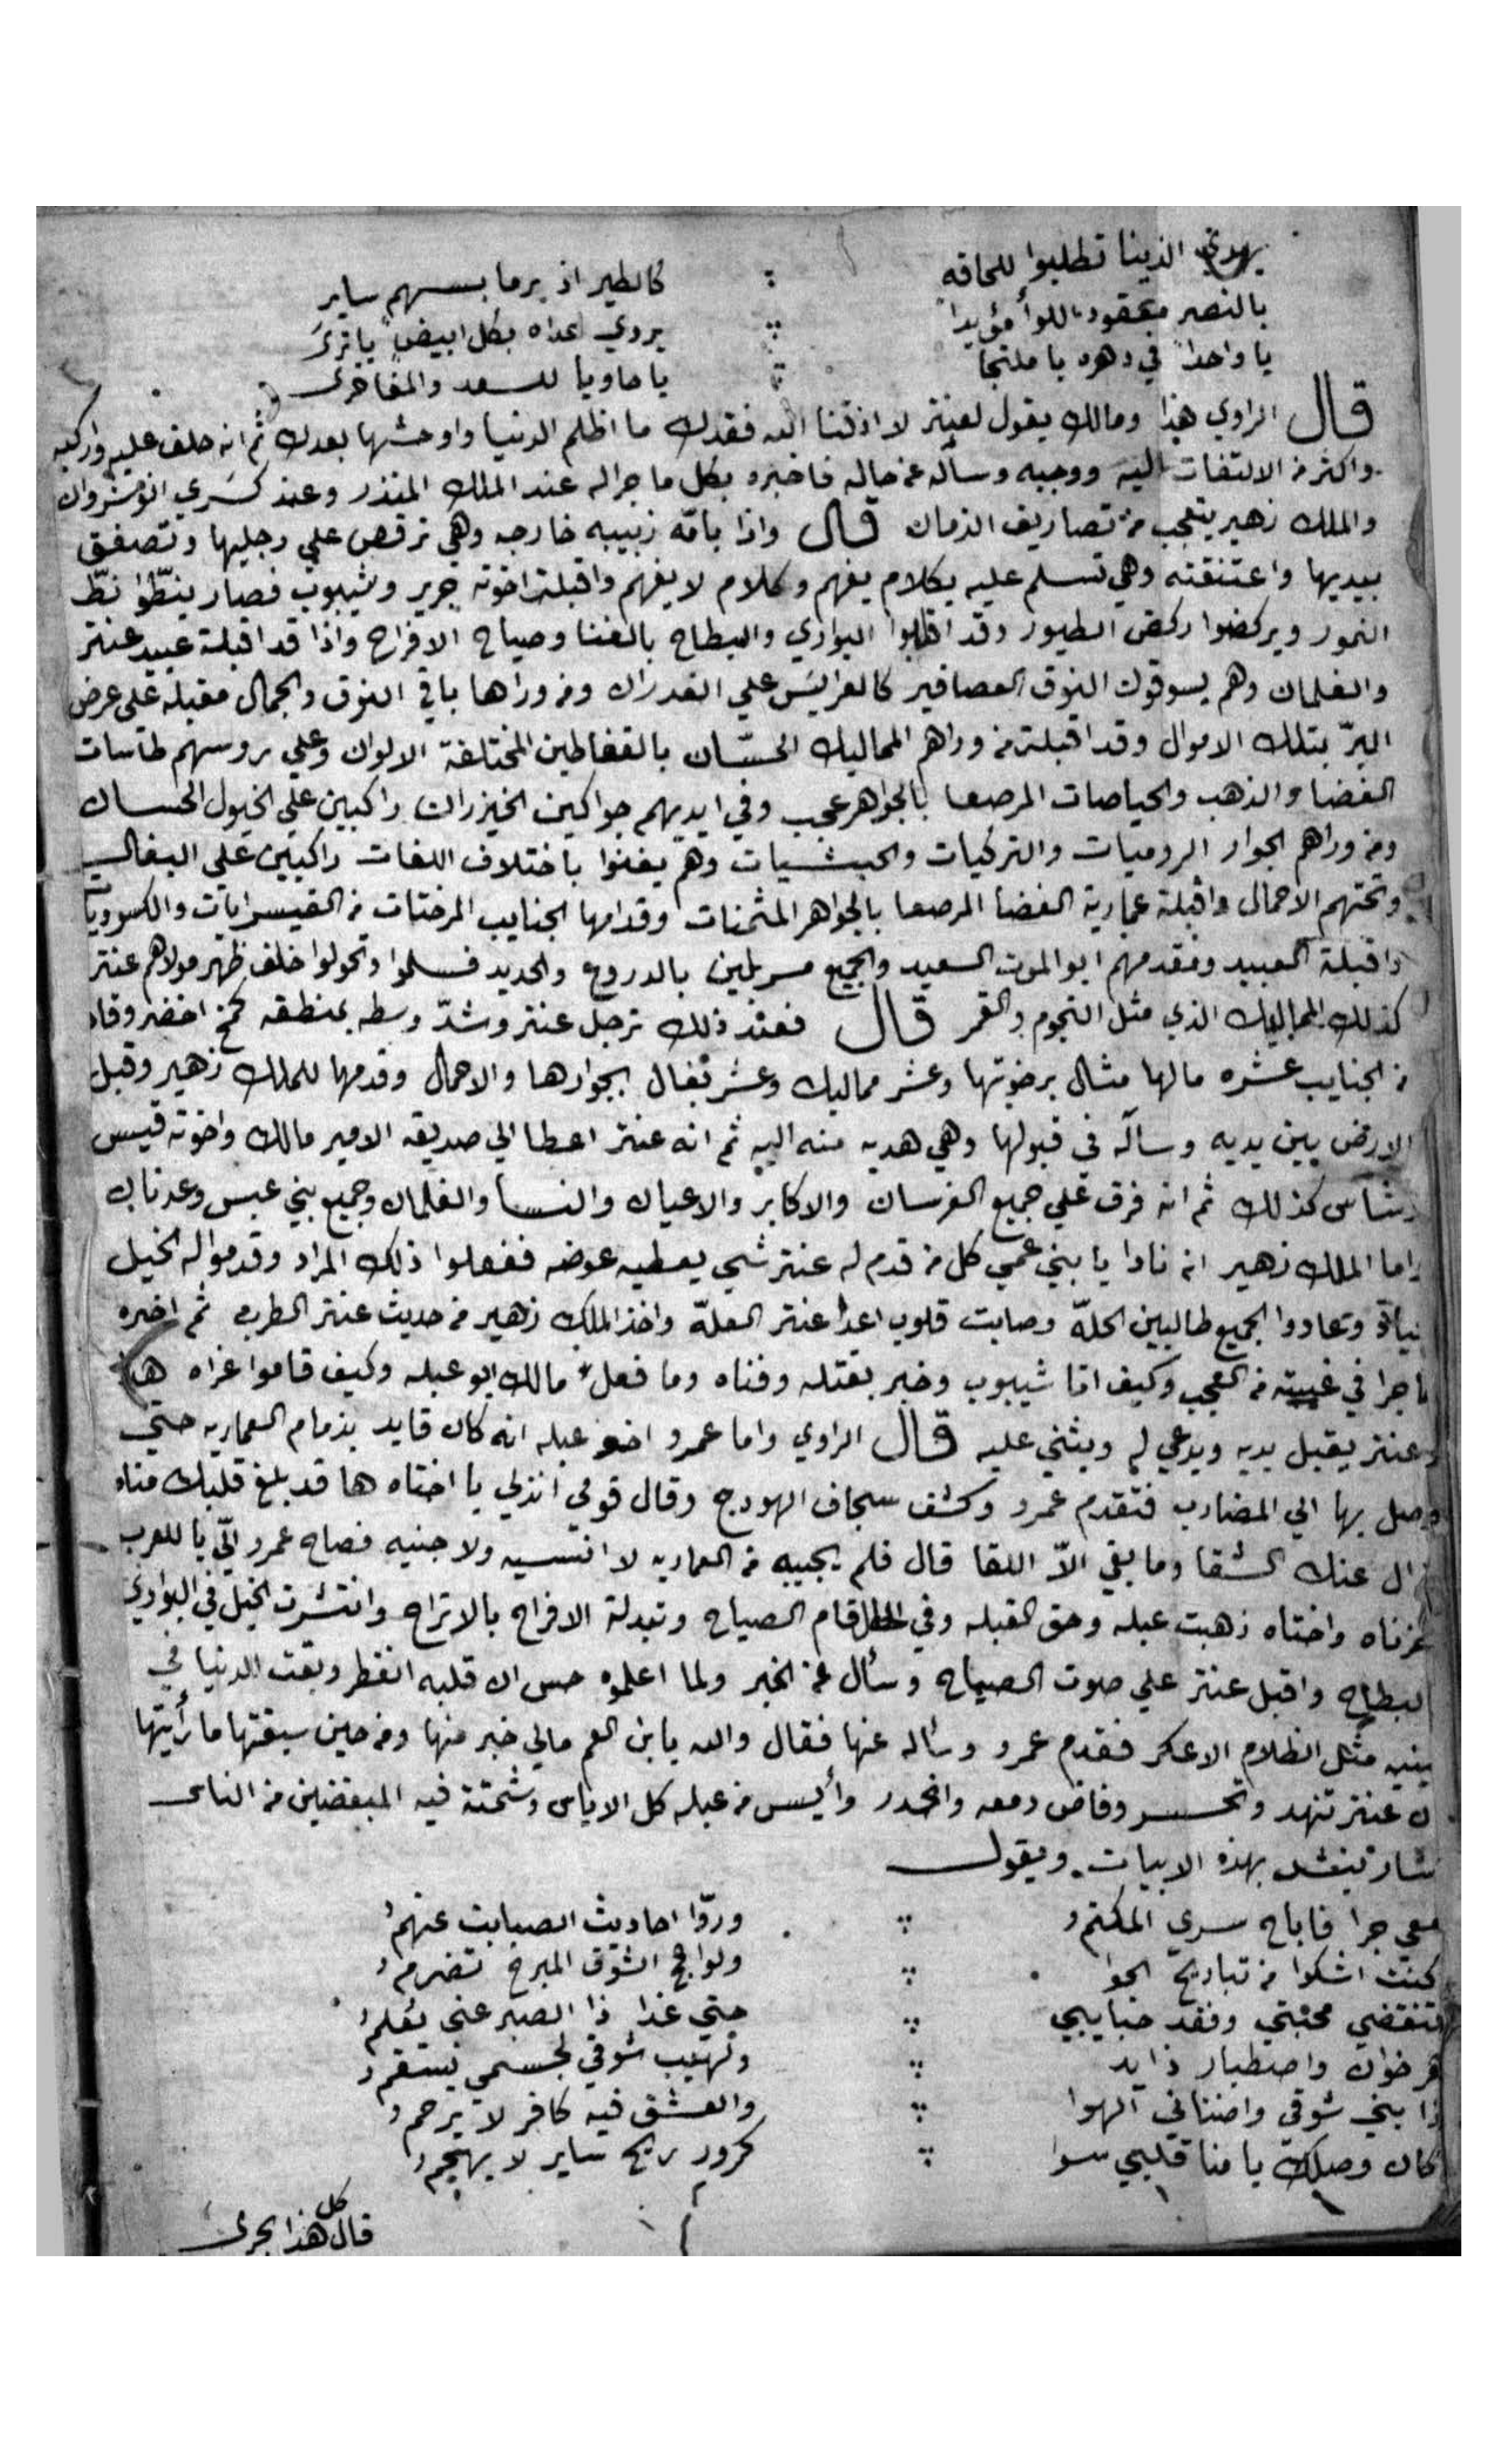 يهدي الذينا تطلبوا للحاقه ؞ كالطير اذ يرما بسهم ساير
بالنصر معقود اللوا مؤيداً ؞ يردي اعداه بكل ابيض باترى
يا واحداً في دهره يا ملتجا ؞ يا حاويا للسعد والمفاخرى
قال الراوي هذا ومالك يقول لعنتر لا اذقنا الله فقدك ما اظلم الدنيا واوحشها بعدك ثم انه حلف عليه واركبه
واكثر من الالتفات اليه ووجبه وسأله عن حاله فاخبره بكل ما جرا له عند الملك المنذر وعند كسري انوشروان
والملك زهير يتعجب من تصاريف الزمان قال واذا بامّه زبيبه خارجه وهي ترقص علي رجليها وتصفق
بيديها واعتنقته وهي تسلم عليه بكلام يفهم وكلام لا يفهم واقبلة اخوته جرير وشيبوب فصار ينطّوا نطّ
النمور ويركضوا ركض الطيور وقد اقلبوا البواري والبطاح بالغنا وصياح الافراح واذا قد اقبلة عبيد عنتر
والغلمان وهم يسوقون النوق العصافير كالعرايس علي الغدران ومن وراها باقي النوق والجمال مقبله علي عرض
البرّ بتلك الاموال وقد اقبلة من وراهم المماليك الحسان بالقفاطين المختلفة الالوان وعلي روسهم طاسات
الفضا والذهب والحياصات المرصعا بالجواهر عجب وفي ايديهم جواكين الخيزران راكبين علي الخيول الحسان
ومن وراهم الجوار الروميات والتركيات والحبشيات وهم يغنوا باختلاف اللغات راكبين علي البغال
وتحتهم الاحمال واقبلة عمارية الفضا المرصعا بالجواهر المثمنات وقدامها الجنايب المرختات من القيسرايات والكسرويات
واقبلة العبيد ومقدمهم ابو الموت السعيد والجميع مسربلين بالدروع والحديد فسلموا وتحولوا خلف ظهر مولاهم عنتر
كذلك المماليك الذي مثل النجوم والقمر قال فعند ذلك ترجل عنتر وشدّ وسطه بمنطقه كمخ اخضر وقاد
من الجنايب عشره مالها مثال برختوتها وعشر مماليك وعشر بغال بجوارها والاحمال وقدمها للملك زهير وقبل
الارض بين يديه وسأله في قبولها وهي هديه منه اليه ثم انه عنتر اعطا الي صديقه الامير مالك واخوته قيس
وشاس كذلك ثم انه فرق علي جميع الفرسان والاكابر والاعيان والنسا والغلمان وجميع بني عبس وعدنان
واما الملك زهير انه نادا يا بني عمي كل من قدم له عنتر شي يعطيه عوضه ففعلوا ذلك المراد وقدموا له الخيل
وتعاودوا الجميع طالبين الحلّة وصابت قلوب اعدا عنتر العلّة واخذ الملك زهير من حديث عنتر الطرب ثم اخبره
ما جرا في غيبته من العجب وكيف اتا شيبوب وخبر بقتله وفناه وما فعل مالك ابو عبله وكيف قاموا عزاه هذا
وعنتر يقبل يديه ويدعي له ويثني عليه قال الراوي واما عمرو اخو عبله انه كان قايد بزمام العماريه حتي
وصل بها الي المضارب فتقدم عمرو وكشف سجاف الهودج وقال قومي انزلي يا اختاه ها قد بلغ قلبك مناه
وزال عنك الشقا وما بقي الاّ اللقا قال فلم يجيبه من العماريه لا انسيه ولا جنيه فصاح عمرو اليّ يا للعرب
واختاه ذهبت عبله وحق القبله وفي الحال قام الصياح وتبدلة الافراح بالاتراح وانتشرت الخيل في البوادي
البطاح واقبل عنتر علي صوت الصياح وسأل عن الخبر ولما اعلموه حس ان قلبه انفطر وبقت الدنيا في
عينيه مثل الظلام الاعكر فقدم عمرو وسأله عنها فقال والله يا بن العم مالي خبر منها ومن حين سبقتها ما رأيتها
عنتر تنهد وتحسر وفاض دمعه وانحدر وأيس من عبله كل الاياس وشمتة فيه المبغضين من الناس
ينشد بهذه الابيات ويقول
جرا فاباح سري المكتم ؞ وروّا احاديث الصبابت عنهم
كنت اشكوا من تباريح الجوا ؞ ولواعج الشوق المبرح تضرم
تنقضي محبتي وفقد حبايبي ؞ حتي غدا ذا الصبر عني يعلم
واصطبار زايد ؞ ولهيب شوقي لجسمي يسقم
شوقي واضناني الهوا ؞ والعشق فيه كافر لا يرحم
كان وصلك يا منا قلبي سوا ؞ كرور ريح ساير لا يهجم
قال كل هذا يجرى